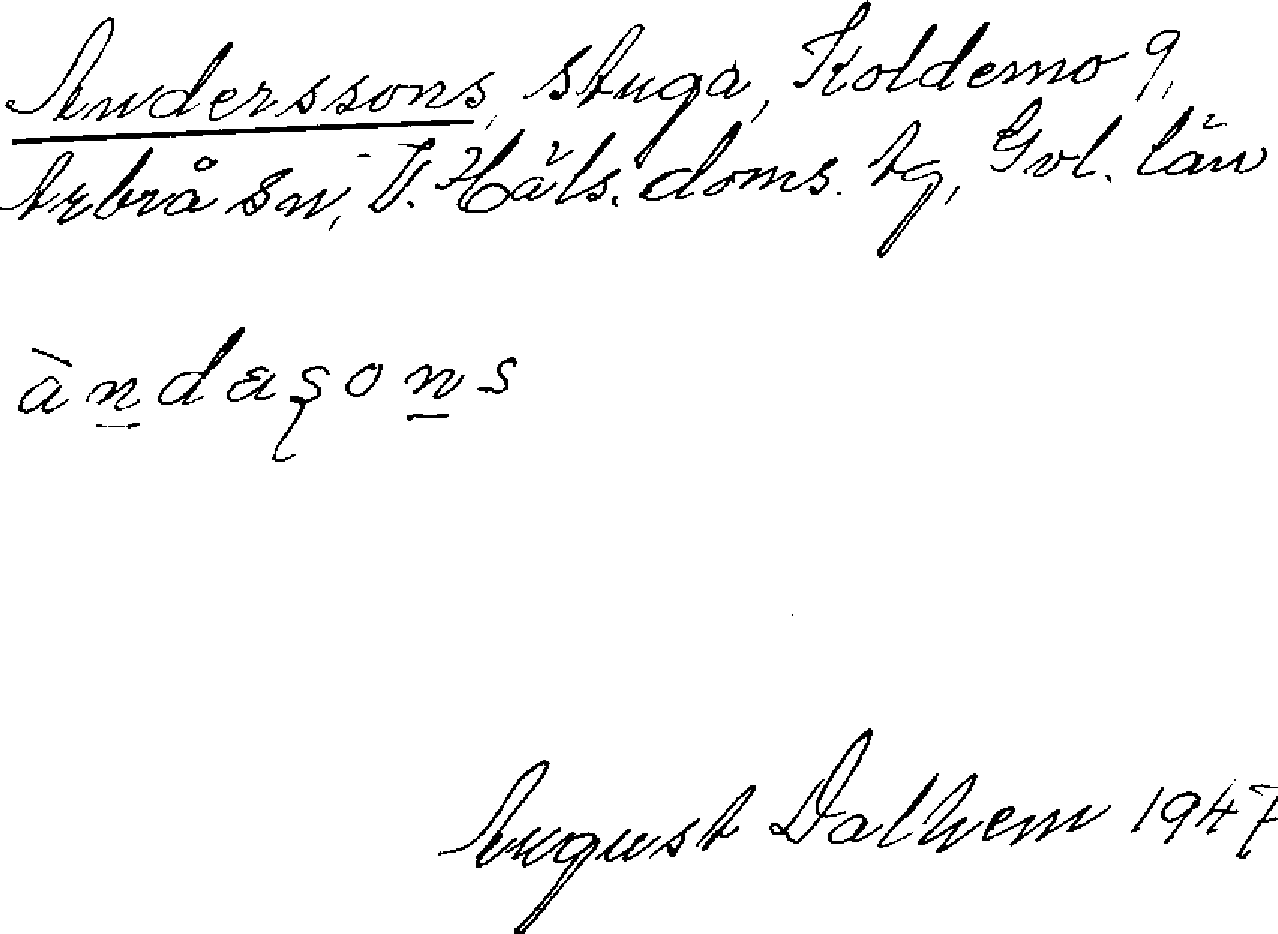 Anderssons, stuga, Koldemo 9,
Arbrå sn, V. Häls. doms. tg, Gvl. län
àndaşons
August Dalhem 1947